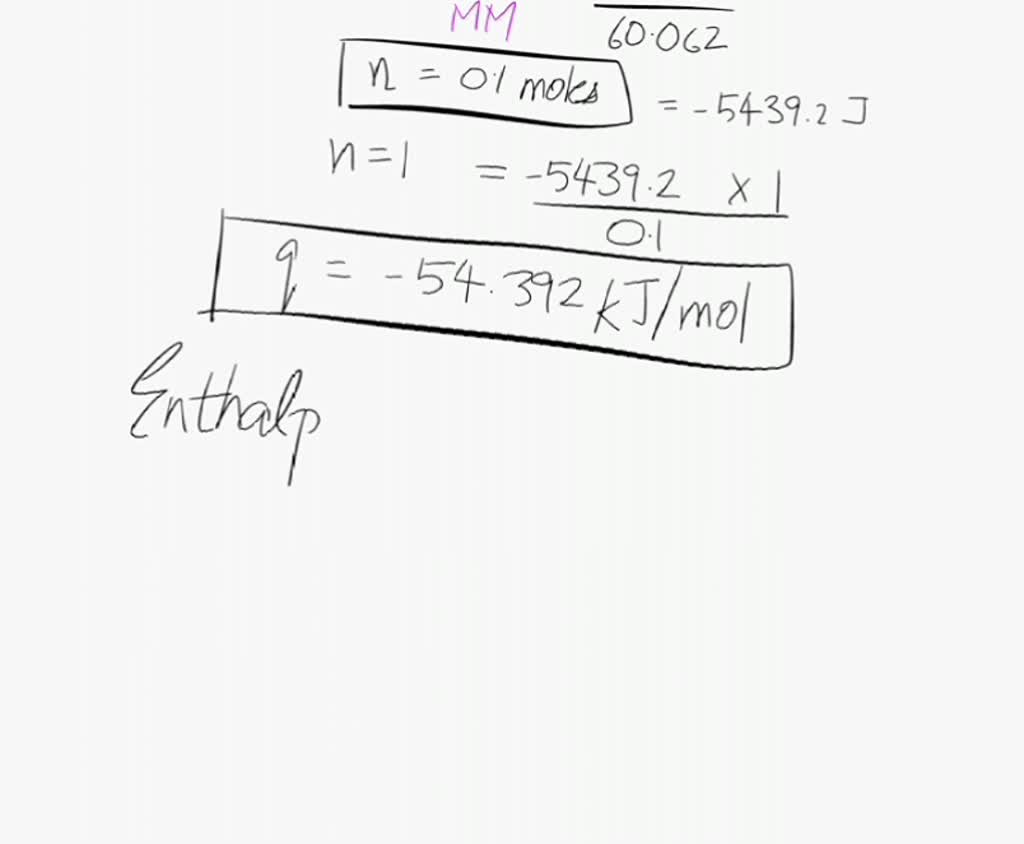 MM
60.062
n = 0.1 moles = -5439.2 J
n=1 = -5439.2 x 1
0.1
q = -54.392 kJ/mol
Enthalp